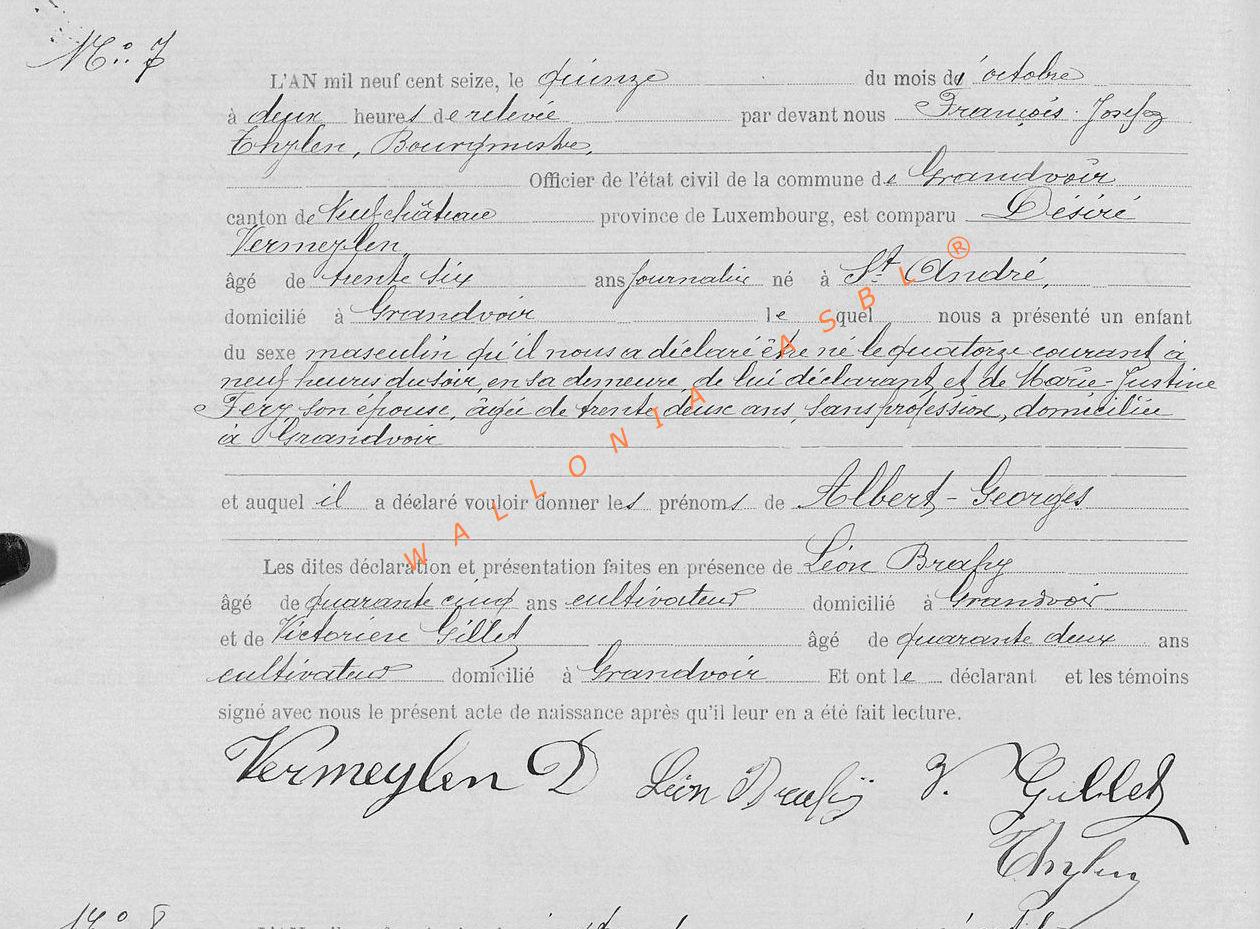 N° 7
L'AN mil neuf cent seize, le quinze du mois d' octobre
à deux heures de relevée par devant nous François-Josef
Thylen, Bourgmestre,
Officier de l'état civil de la commune de Grandvoir
canton de Neufchâteau province de Luxembourg, est comparu Désiré
Vermeylen
âgé de trente six ans journalier né à St André,
domicilié à Grandvoir lequel nous a présenté un enfant
du sexe masculin qu'il nous a déclaré être né le quatorze courant à
neuf heures du soir, en sa demeure, de lui déclarant, et de Marie-Justine
Fery son épouse, âgée de trente deux ans, sans profession, domiciliée
à Grandvoir
et auquel il a déclaré vouloir donner les prénoms de Albert-Georges
Les dites déclaration et présentation faites en présence de Léon
âgé de quarante cinq ans cultivateur domicilié à Grandvoir
et de Victorien Gillet âgé de quarante deux ans
cultivateur domicilié à Grandvoir Et ont le déclarant et les témoins
signé avec nous le présent acte de naissance après qu'il leur en a été fait lecture.
Vermeylen D Léon V. Gillet
Thylen
N° 8
WALLONIA ASBL ®